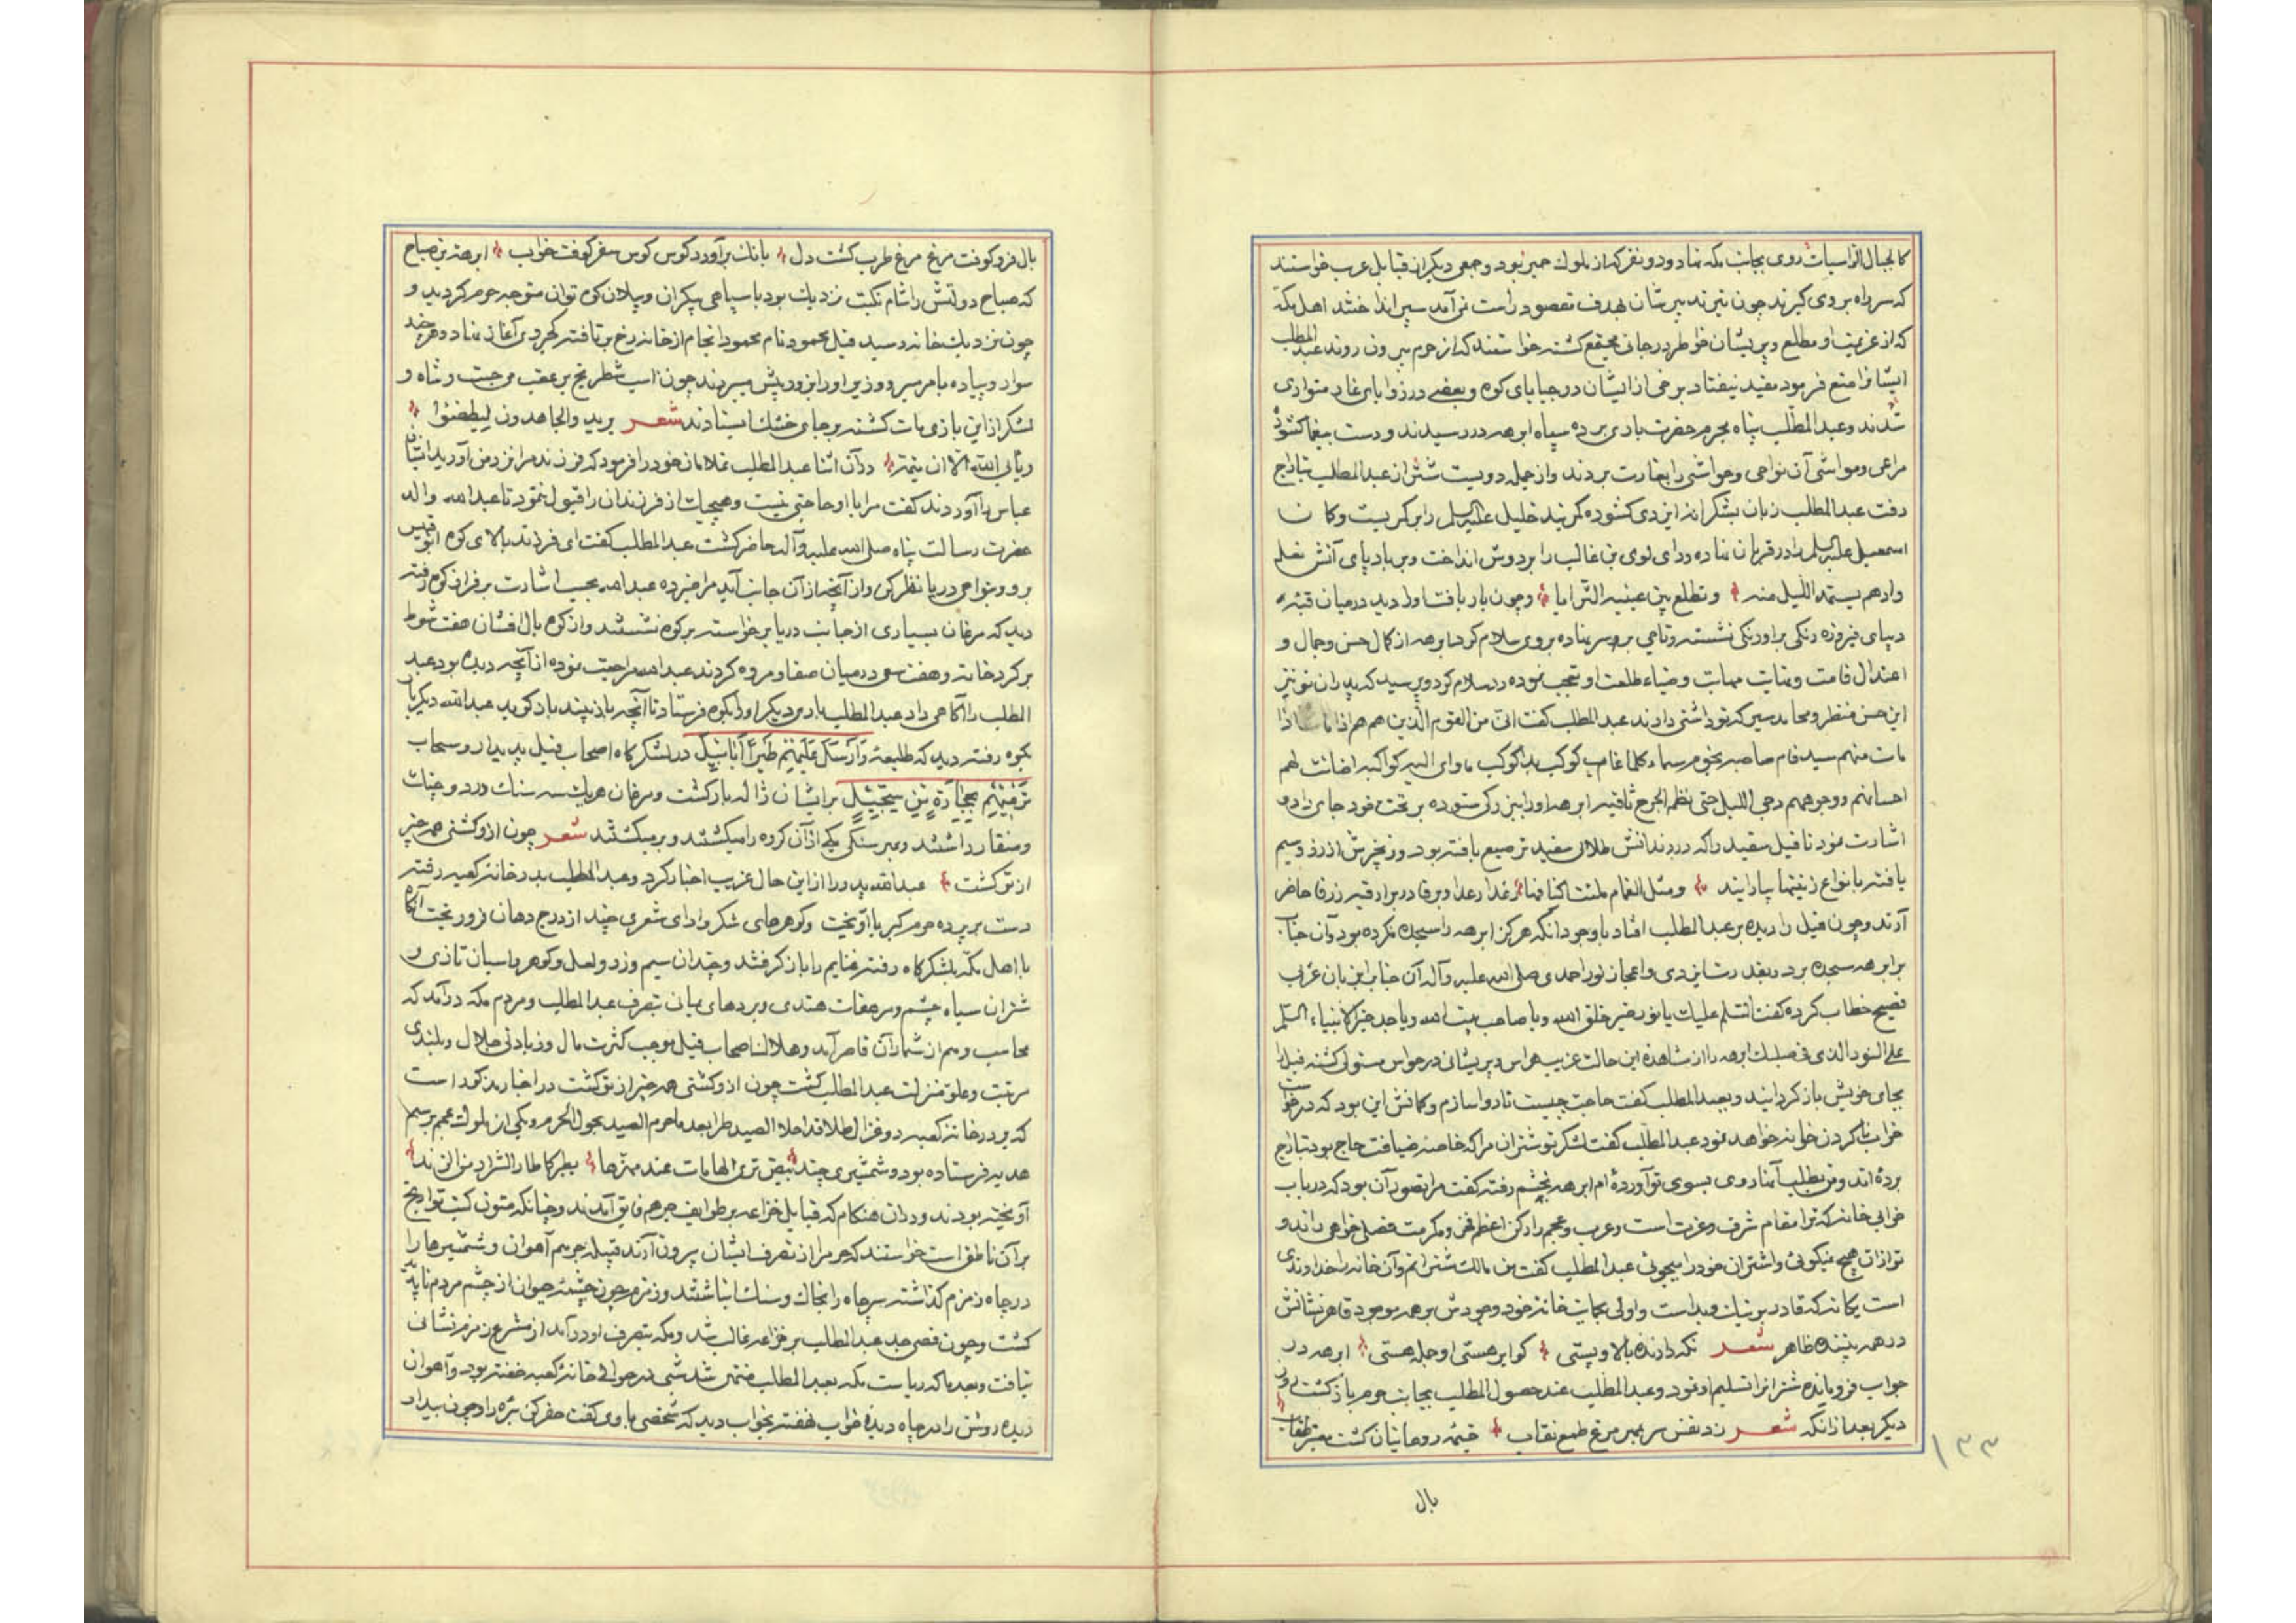 کالجبال الراسیات روی بجانب مکه نهاد و دو نفر که از ملوک حمیر بود و جمعی دیگر از قبایل عرب خواستند
که سر راه بر وی گیرند چون تیر تدبیرشان بهدف مقصود راست نمی آمد سپر انداختند اهل مکه
که از عزیمت او مطلع و پریشان خواطر در جائی مجتمع گشته خواستند که از حرم بیرون روند عبدالمطلب
ایشانرا منع فرمود مفید نیفتاد برخی از ایشان در خبایای کوه و بعضی در زوایای غار متواری
شدند و عبدالمطلب پناه بحرم حضرت باری برده سپاه ابرهه در رسیدند و دست بیغما گشوده
مراعی و مواشی آن نواحی و حواشی را بغارت بردند و از جمله دویست شتر از عبدالمطلب بتاراج
رفت عبدالمطلب زبان بشکرانه ایزدی گشوده کمربند خلیل علیه السلم را بر کمر بست و کمان
اسمعیل علیه السلم را در قربان نهاده ردای لوی بن غالب را بر دوش انداخت و بر بادپای آتش نعل
وادهم یستمد اللیل منه و تطلع بین عینیه الثرایا و چون بار یافت او را دید در میان قبه
دیبای فیروزه رنگی بر اورنگی نشسته و تاجی بر سر نهاده بر وی سلام کرد ابرهه از کمال حسن و جمال و
اعتدال قامت و غایت مهابت و ضیاء طلعت او تعجب نموده رد سلام کرد و پرسید که پدران تو نیز
این حسن منظر و محامد سیر که تو داشتی دارند عبدالمطلب گفت انی من القوم الذین هم هم اذا
مات منهم سید قام صاحبه نجوم سماء کلما غاب کوکب بدا کوکب تاوی الیه کواکبه اضائت لهم
احسابهم و وجوههم دجی اللیل حتی نظم الجزع ثاقبه ابرهه او را بزرگی ستوده بر تخت خود جای داد و
اشارت نمود تا فیل سفید را که در دندانش طلای سفید ترصیع یافته بود و زنجیرش از زر و سیم
بافته بانواع زینتها بیارایند و مثل الغمام رعدا و برقا در برابر قبه زرقا حاضر
آرند و چون فیل را دیده بر عبدالمطلب افتاد با وجود آنکه هرگز ابرهه را سجده نکرده بود آن جناب
برابرهه سجده برد و بقدرت ایزدی و اعجاز نور احمدی صلی الله علیه و آله آن جناب را بزبان عربی
فصیح خطاب کرده گفت السلام علیک یا نور خیر خلق الله و یا صاحب بیت الله و یا جد خیر الانبیاء السلام
علی النور الذی فی صلبک ابرهه را از مشاهده این حالت غریب هراس و پریشانی در حواس مستولی گشته فیل را
بجای خویش باز گردانید و بعبدالمطلب گفت حاجت چیست تا روا سازم و گمانش این بود که درخواست
خراب ناکردن خانه خواهد نمود عبدالمطلب گفت لشکر تو شتران مرا که خاصه ضیافت حاج بود بتاراج
برده اند و من بطلب آنها روی بسوی تو آورده ام ابرهه بخشم رفته گفت مرا تصور آن بود که در باب
خرابی خانه که ترا مقام شرف و عزت است و عرب و عجم را رکن اعظم فخر و مکرمت فصلی خواهی راند و
تو از آن هیچ نمیگوئی و اشتران خود را میجوئی عبدالمطلب گفت من مالک شترانم و آن خانه را خداوندی
است یگانه که قادر بر نیک و بد است و اولی بحمایت خانه خود وجودش بر همه موجود قاهر نشانش
در همه بیننده ظاهر شعر نگه دارنده بالا و پستی گوا بر هستی او جمله هستی ابرهه در
جواب فرو مانده شترانرا تسلیم او نمود و عبدالمطلب عند حصول المطلب بجانب حرم بازگشت روز
دیگر بعد از آنکه شعر زد نفس سر بمهر صبح ملمع نقاب خیمه روحانیان گشت معنبر طناب
۱۳۳
بال
بال فرو کوفت مرغ مرغ طرب گشت دل بانگ برآورد کوس کوس سفر کوفت خواب ابرهة بن صباح
که صباح دولتش را شام نکبت نزدیک بود با سپاهی بیکران و پیلان کوه توان متوجه حرم گردید و
چون نزدیک خانه رسید فیل محمود نام محمود انجام از خانه رخ برتافته کجروی آغاز نهاد و هر چند
سوار و پیاده با مر میر و وزیر او را بزور پیش میبردند چون اسب شطرنج بر عقب می جست و شاه و
لشکر از این بازی مات گشته بر جای خشک ایستادند شعر یرید والجاحدون لیطفئوا
ویأبی الله الا ان یتمه در آن اثنا عبدالمطلب غلامان خود را فرمود که فرزندم را نزد من آورید ایشان
عباس را آوردند گفت مرا با او حاجتی نیست و هیچیک از فرزندان را قبول ننمود تا عبدالله والد
حضرت رسالت پناه صلی الله علیه و آله حاضر گشت عبدالمطلب گفت ای فرزند ببالای کوه ابوقبیس
برو و بنواحی دریا نظر کن و از آنچه از آن جانب آید مرا خبر ده عبدالله بحسب اشارت بر فراز کوه رفته
دید که مرغان بسیاری از جانب دریا برخواسته بر کوه نشستند و از کوه بال افشان هفت شوط
بر گرد خانه و هفت سعی در میان صفا و مروه کردند عبدالله مراجعت نموده از آنچه دیده بود عبد
المطلب را آگاهی داد عبدالمطلب بار دیگر او را بکوه فرستاد تا آنچه باز بیند باز گوید عبدالله دیگر بار
بکوه رفته دید که طلیعه وَأَرْسَلَ عَلَیْهِمْ طَیْراً أَبابِیلَ در لشکرگاه اصحاب فیل پدیدار و سحاب
تَرْمِیهِمْ بِحِجارَةٍ مِنْ سِجِّیلٍ بر ایشان ژاله بار گشت و مرغان هر یک سه سنگ در دو چنگ
و منقار داشتند و بهر سنگی یکی از آن گروه را میکشتند و بر میگشتند شعر چون ازو گشتی همه چیز
از تو گشت عبدالله پدر را از این حال غریب اخبار کرد و عبدالمطلب بدر خانه کعبه رفته
دست بر پرده حرم کبریا آویخت و گوهرهای شکر و ادای شعری چند از درج دهان فرو ریخت آنگاه
با اهل مکه بلشکرگاه رفته غنایم را بازگرفتند و چندان سیم و زر و لعل و گوهر و اسبان تازی و
شتران سیاه چشم و مرهفات هندی و بردهای یمان بتصرف عبدالمطلب و مردم مکه درآمد که
محاسب وهم از شمار آن قاصر آمد و هلاک اصحاب فیل موجب کثرت مال و زیادتی جلال و بلندی
مرتبت و علو منزلت عبدالمطلب گشت چون ازو گشتی همه چیز از تو گشت در اخبار مذکور است
که بر در خانه کعبه دو غزال طلا قد احلا الصید طرا بعد ما حرم الصید بحول الحرم و یکی از ملوک عجم برسم
هدیه فرستاده بود و شمشیری چند تبیض تری الهامات عند مهزها
آویخته بودند و در آن هنگام که قبایل خزاعه بر طوایف جرهم فایق آمدند و چنانکه متون کتب تواریخ
بر آن ناطق است خواستند که حرم را از تصرف ایشان بیرون آرند قبیله جرهم آهوان و شمشیرها را
در چاه زمزم گذاشته سر چاه را بخاک و سنگ انباشتند و زمزم چون چشمه حیوان از چشم مردم ناپدید
گشت و چون قصی جد عبدالمطلب بر خزاعه غالب شد و مکه بتصرف او درآمد از مشرع زمزم نشانی
نیافت و بعد ما که ریاست مکه بعبدالمطلب منتهی شد شبی در حوالی خانه کعبه خفته بود و آهوان
دیده روشن را در چاه دیده خواب نهفته بخواب دید که شخصی با وی گفت حفر کن بره را و چون بیدار